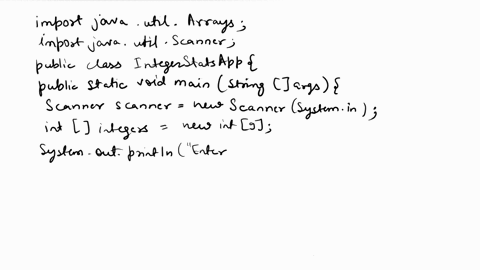 import java.util.Arrays;
import java.util.Scanner;
public class IntegerStatsApp{
public static void main (String []args){
Scanner scanner = new Scanner (System.in);
int [] integers = new int [9];
System.out.println("Enter